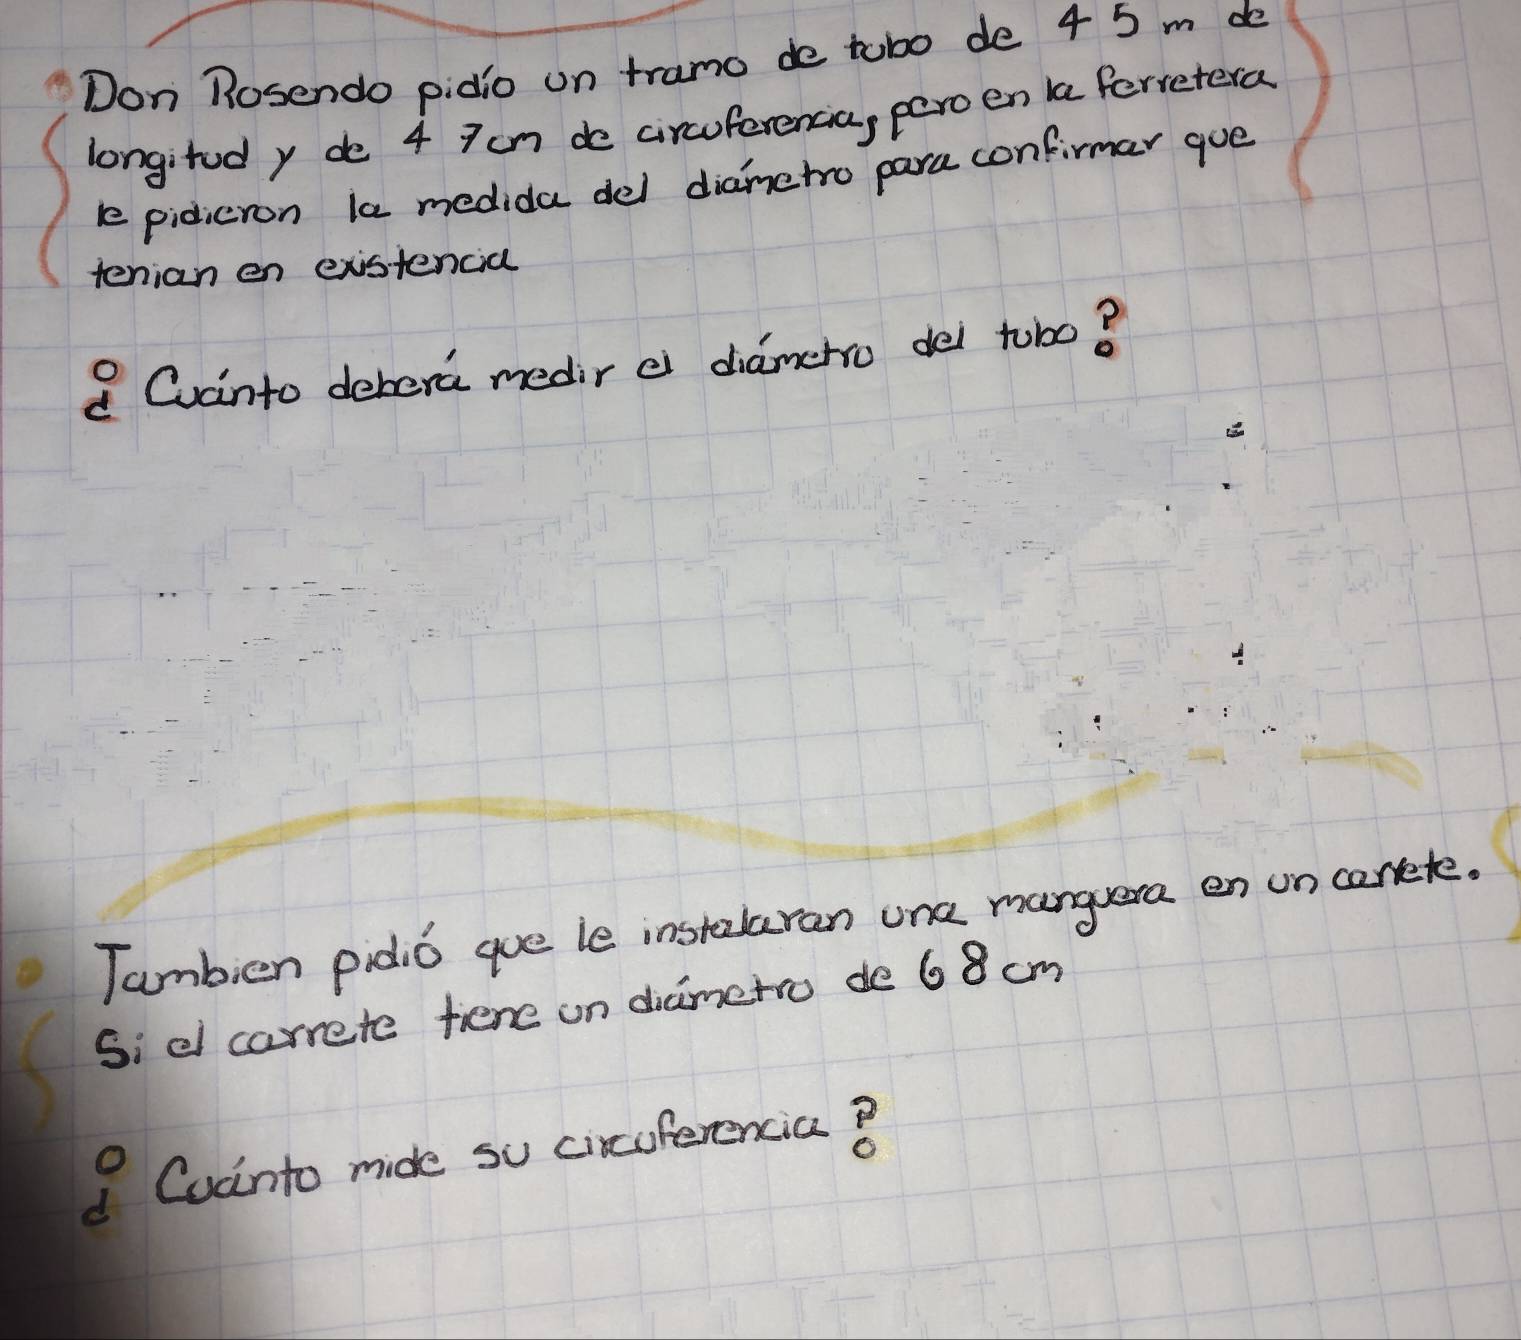 Don Rosendo pidío un tramo de tubo de 45 m de
longitud y de 47cm de circuferencia, pero en la ferretera
le pidieron la medida del diámetro para confirmar que
tenian en existencia
¿Cuánto deberá medir el diámetro del tubo?
Tambien pidió que le instalaran una manguera en un carrete.
Si el carrete tiene un diámetro de 68 cm
¿Cuánto mide su circuferencia?